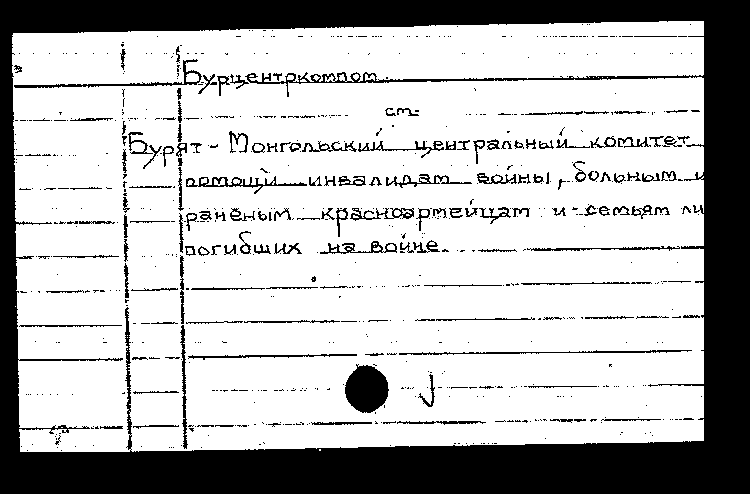 Бурцентркомпом
см.
Бурят-Монгольский центральный комитет
помощи инвалидам войны, больным и
раненым красноармейцам и семьям ли
погибших на войне